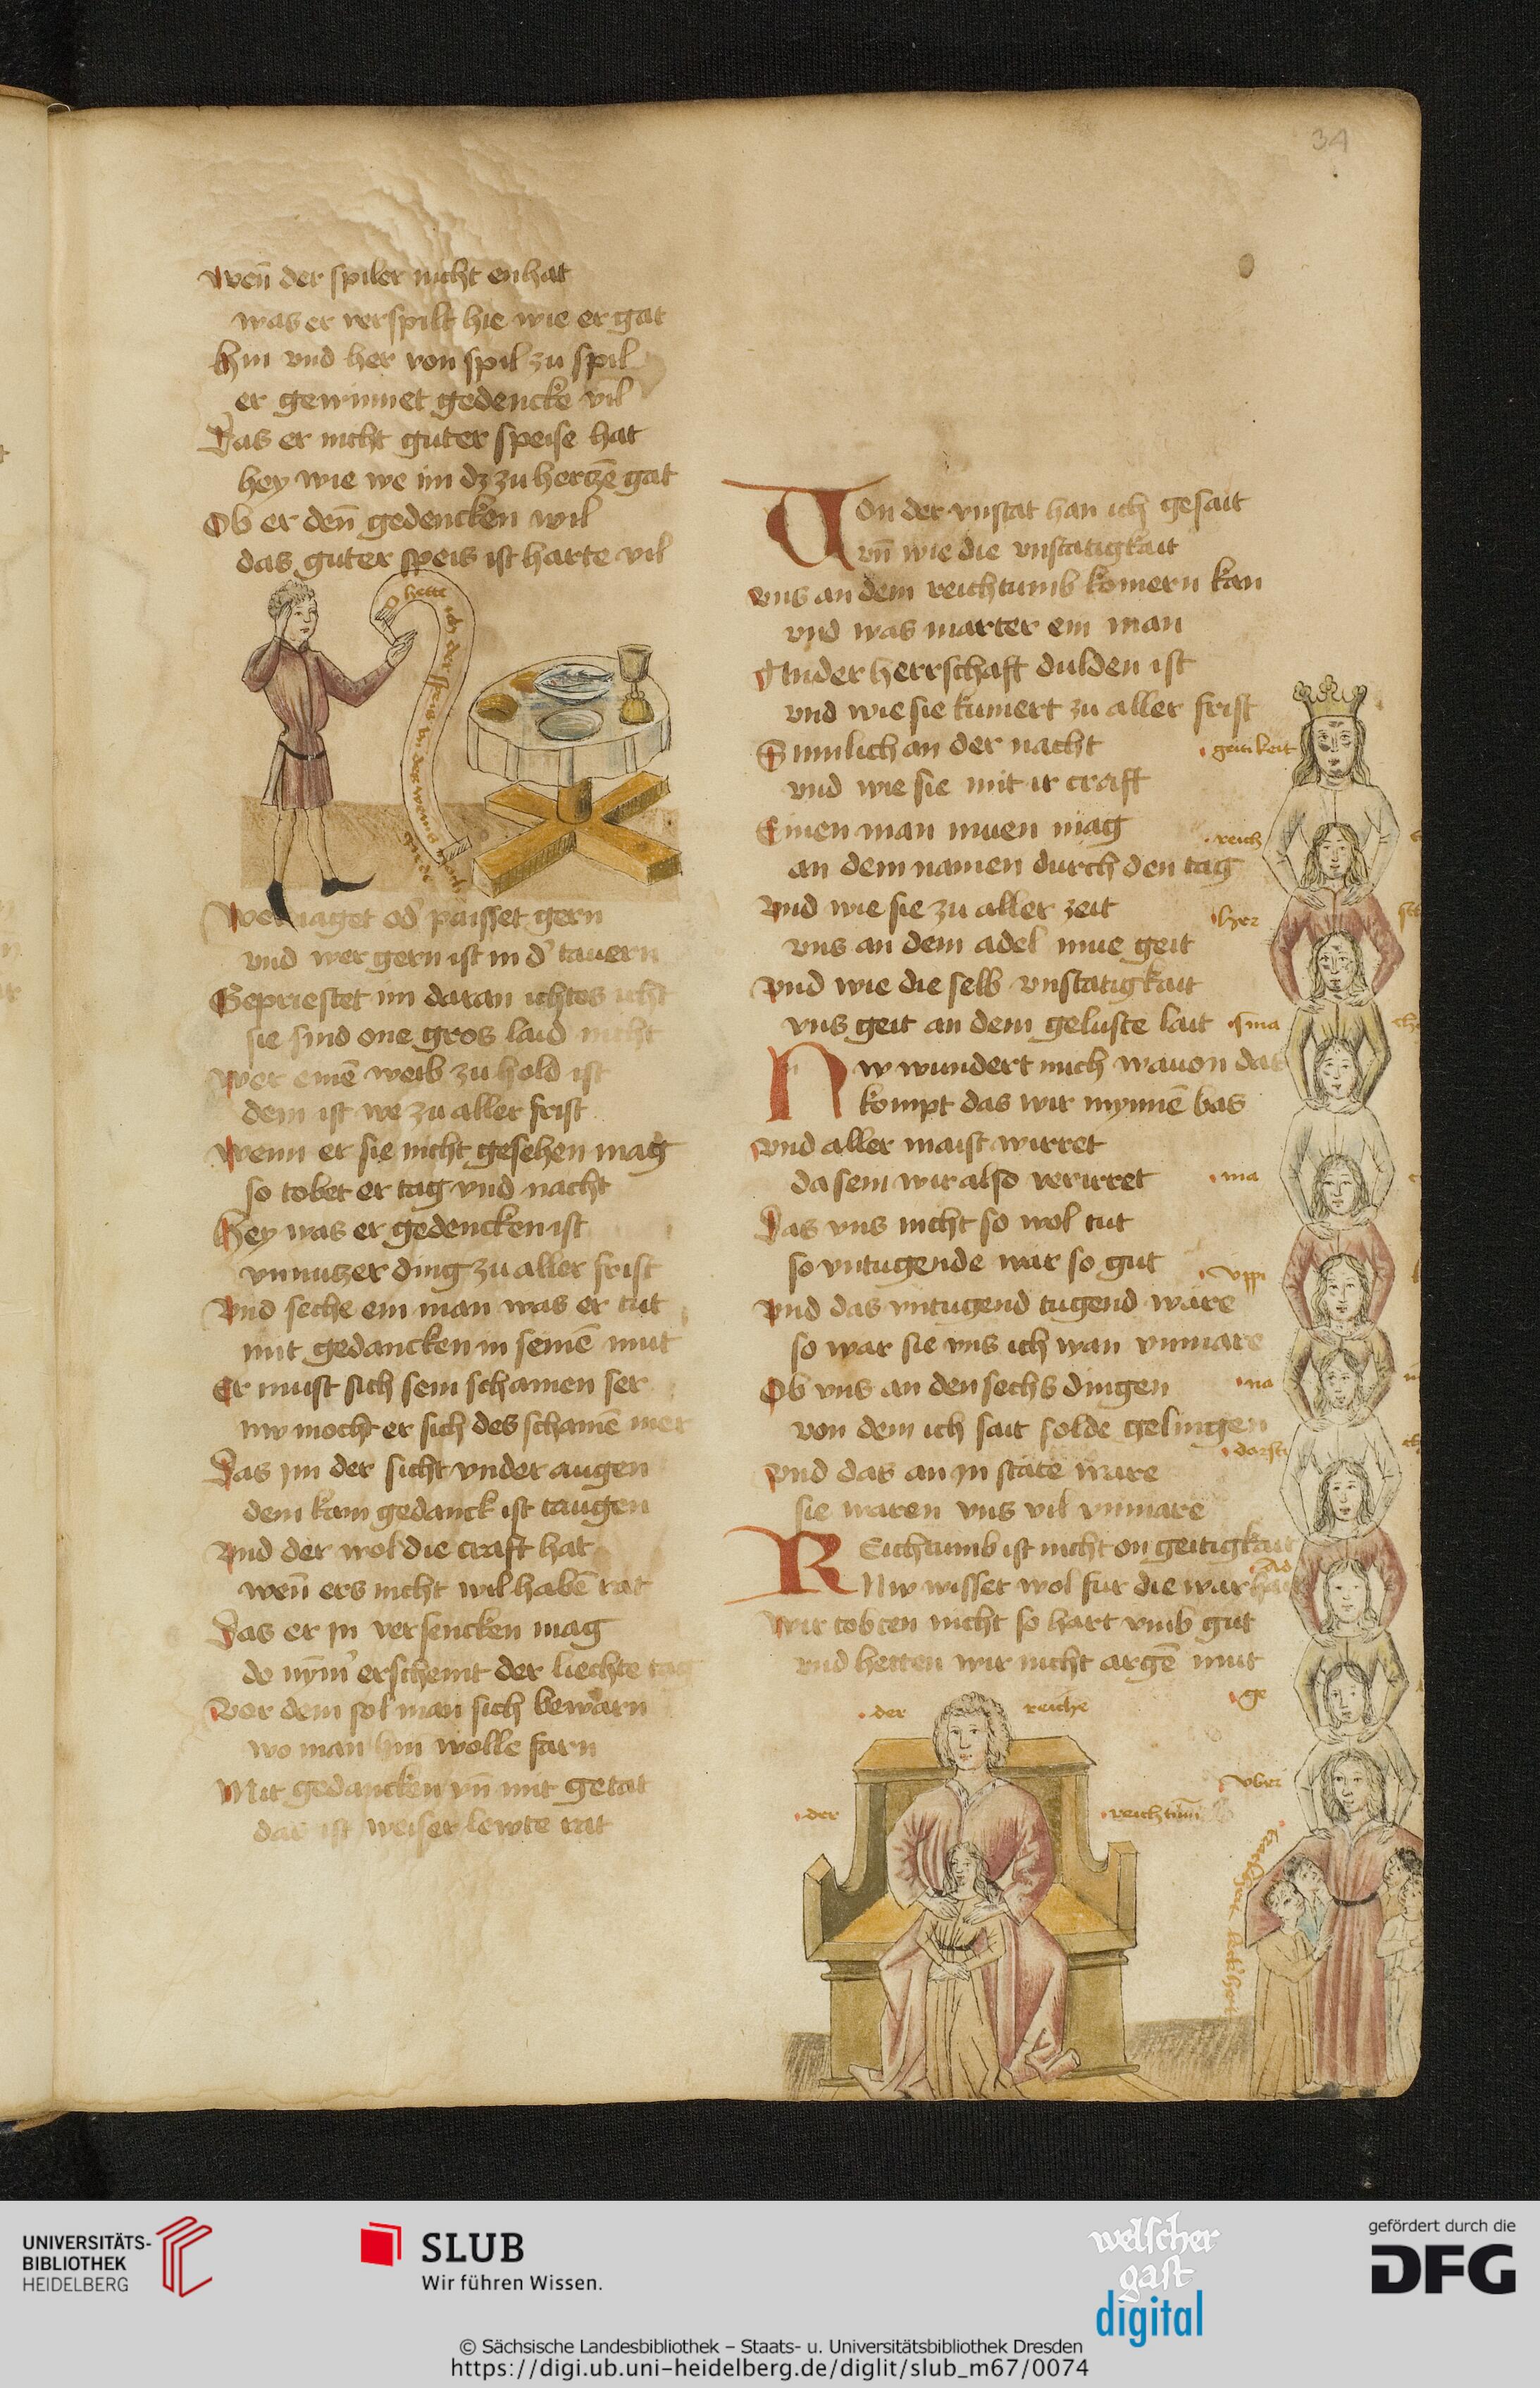 34
Wen̄ der spiler nicht enhat
was er verspilt hie wie er gat
Hin vnd her von spil zu spil
er gewinnet gedencke vil
Das er nicht guter speise hat
hey wie we im dz zu hertzē gat
Ob er den̄ gedencken wil
das guter speis ist harte vil
O hette ich der speis
vnd wer gern ist in d' tauern
Gepristet im daran ichtes icht
sie sind one gros laid nicht
Wer einē weib zu hold ist
dem ist we zu aller frist
Wenn er sie nicht gesehen mag
so tobet er tag vnd nacht
Hey was er gedencken ist
vnnutzer ding zu aller frist
Vnd seche ein man was er tut
mit gedancken in seinē mut
Er must sich sein schamen ser
nw mocht er sich des schamē mer
Das jm der sicht vnder augen
dem kain gedanck ist taugen
Vnd der wol die craft hat
wen̄ ers nicht wil habē rat
Das er jn versencken mag
do nȳm' erscheint der liechte tag
Vor dem sol man sich bewarn
wo man hin wolle farn
Mit gedancken vn̄ mit getat
das ist weiser lewte rat
Von der vnstat han ich gesait
vn̄ wie die vnstatigkait
vns an dem reichtumb komern kan
vnd was marter ein man
An der herrschaft dulden ist
vnd wie sie kumert zu aller frist
Sinnlich an der nacht
vnd wie sie mit ir craft
Einen man muen mag
an dem namen durch den tag
Vnd wie sie zu aller zeit
vns an dem adel mue geit
Vnd wie die selb vnstatigkait
vns geit an dem geluste lait
Nw wundert mich wauon das
kompt das wir mynnē bas
Vnd aller maist wirret
da sein wir also verirret
Das vns nicht so wol tut
so vntugende war so gut
Vnd das vntugend tugend ware
so war sie vns ich wan vnmare
Ob vns an den sechs dingen
von dem ich sait solde gelingen
Vnd das an jn state ware
sie waren vns vil vnmare
Reichtumb ist nicht on geitigkait
Nw wisset wol fur die warhait
Wir tobten nicht so hart vmb gut
vnd hetten wir nicht argē mut
geitikeit
reich
her
sma
ma
vppi
ma
ad
ge
vber
der reiche
der reichtum̄
UNIVERSITÄTS-
BIBLIOTHEK
HEIDELBERG
SLUB
Wir führen Wissen.
welscher
gast
digital
gefördert durch die
DFG
© Sächsische Landesbibliothek – Staats- u. Universitätsbibliothek Dresden
https://digi.ub.uni-heidelberg.de/diglit/slub_m67/0074